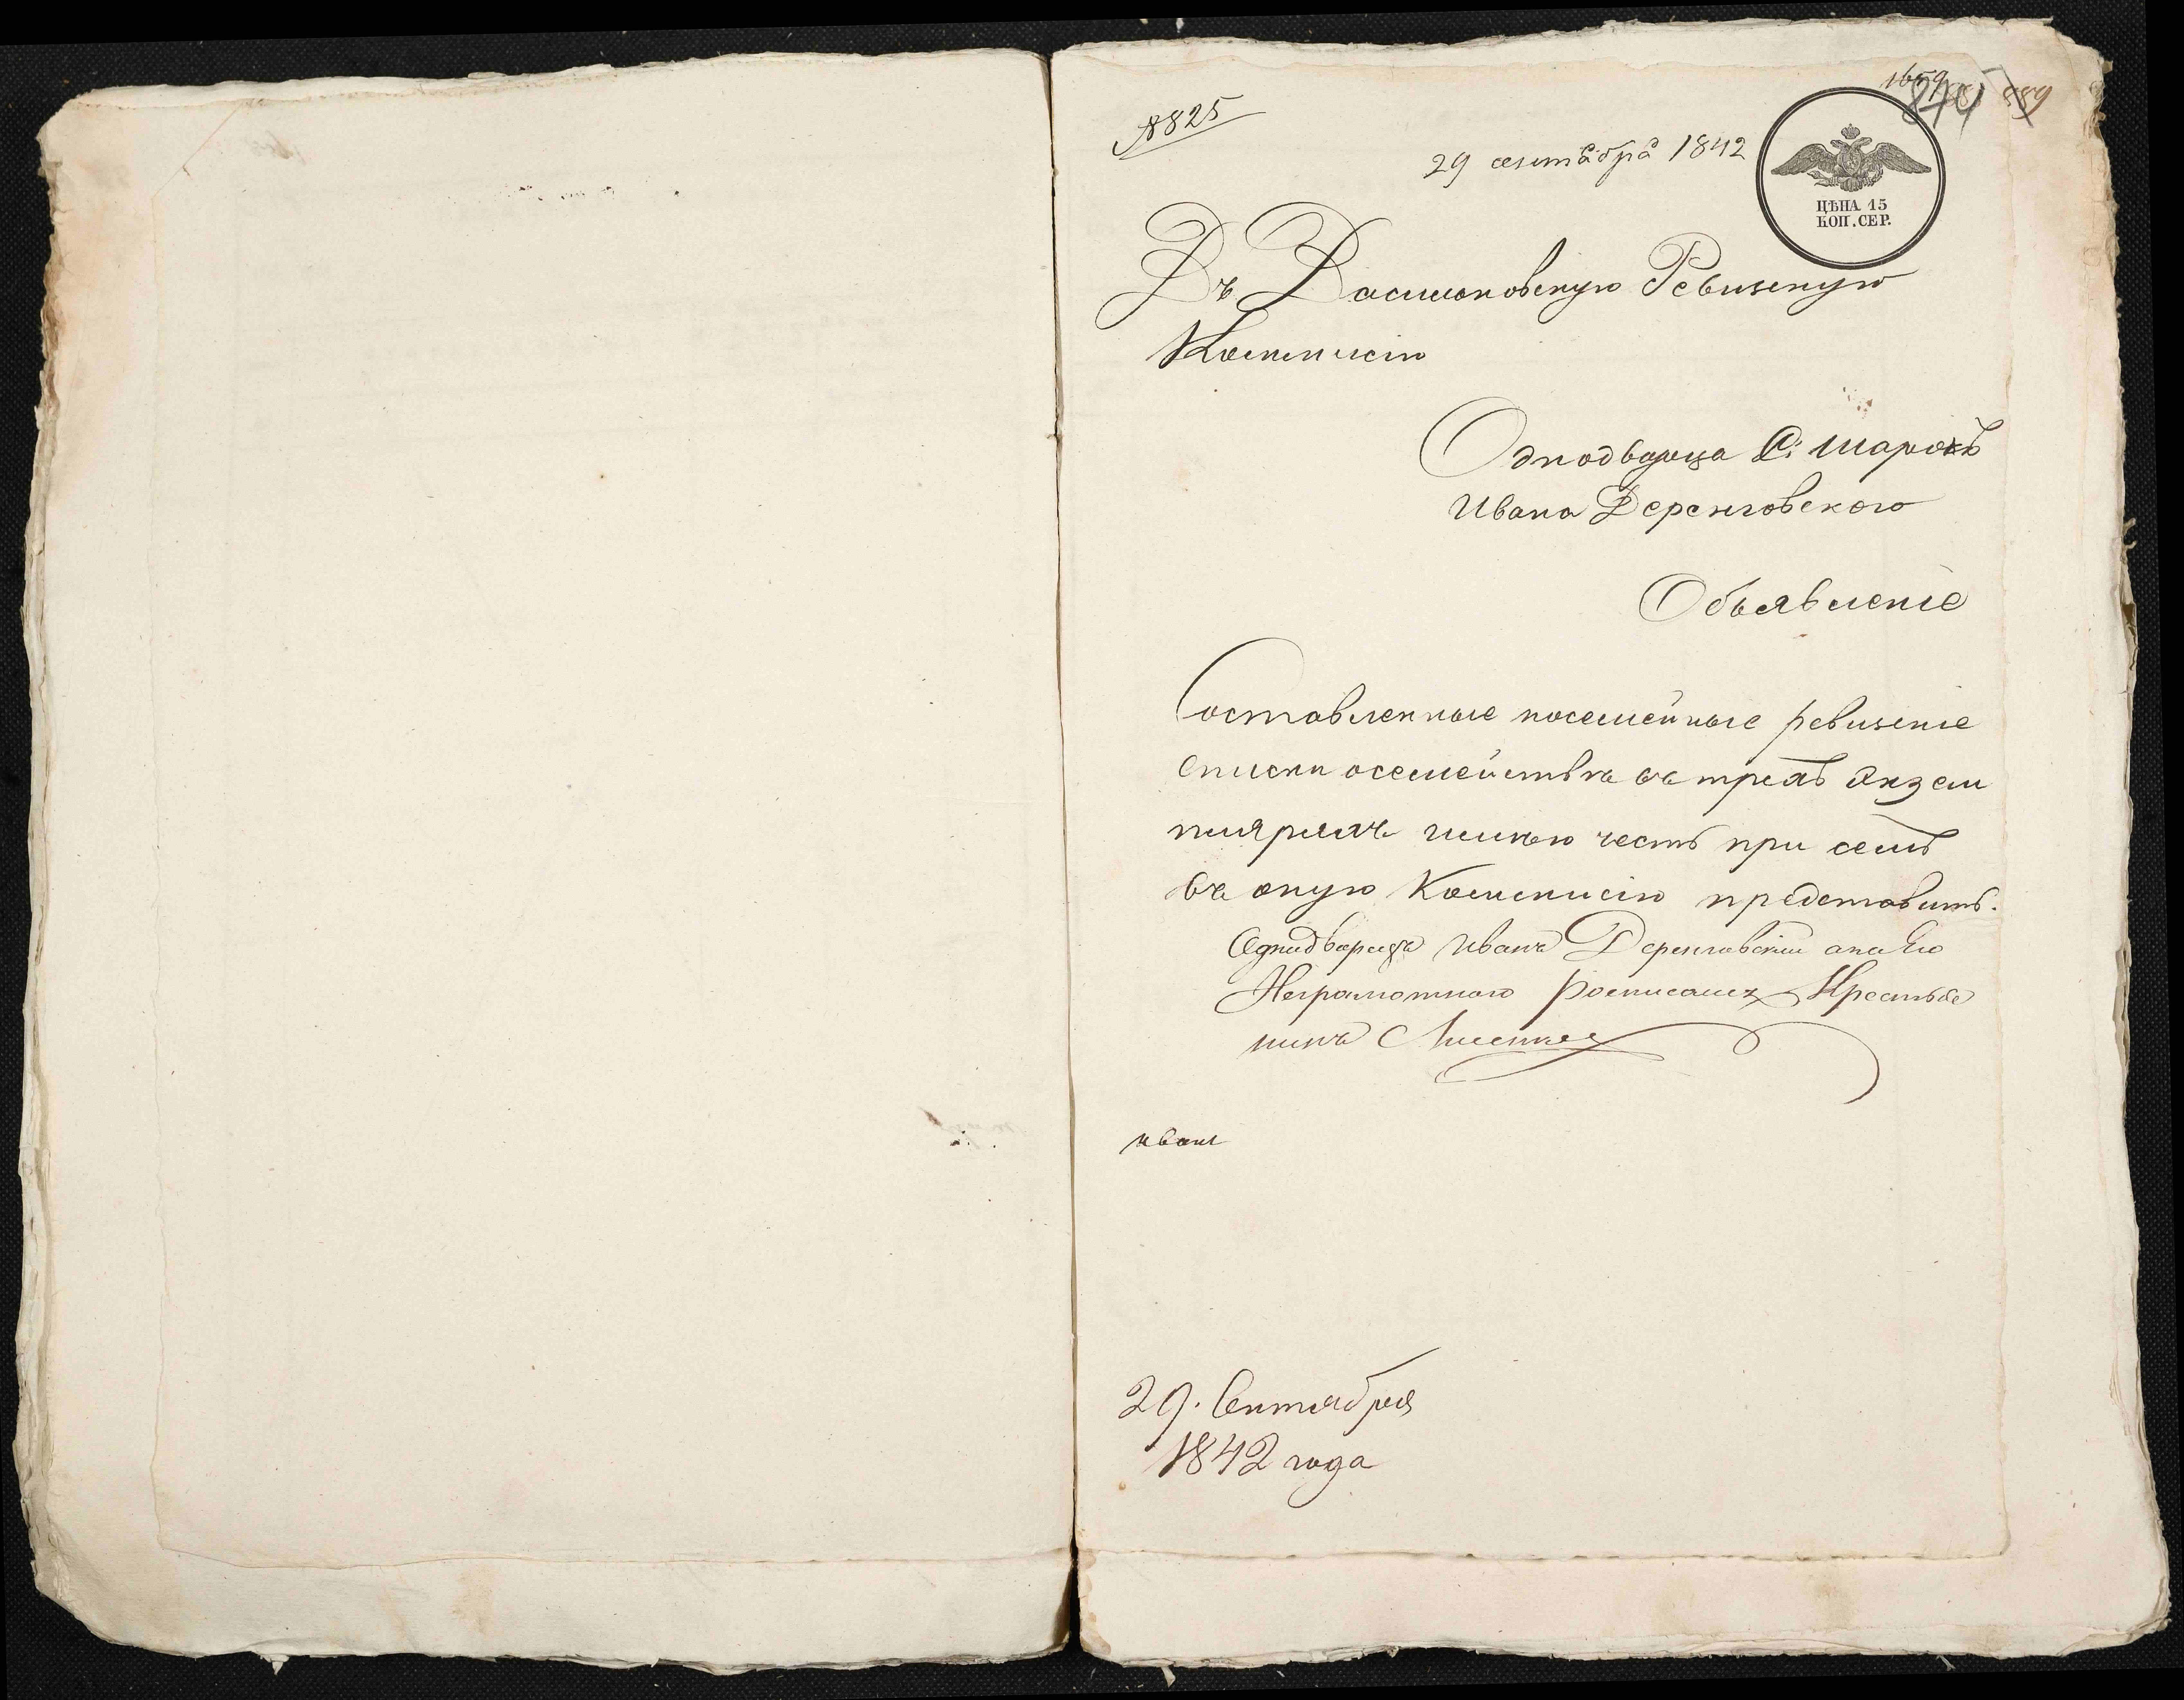 №825
889
29 сентября 1842
ЦѢНА 15
КОП. СЕР.
Въ Васильковскую Ревизскую
Коммисію
Однодворца С: Шарокъ
Ивана Деренговского
Объявленіе
Составленные посемейные ревизскіе
списки о семействѣ въ трехъ экзем
плярахъ имѣю честь при семъ
въ оную Коммисію представить.
Однодворецъ Иванъ Деренговскій а за его
Неграмотного росписался Крестья
нинъ
иванъ
29. Сентября
1842 года